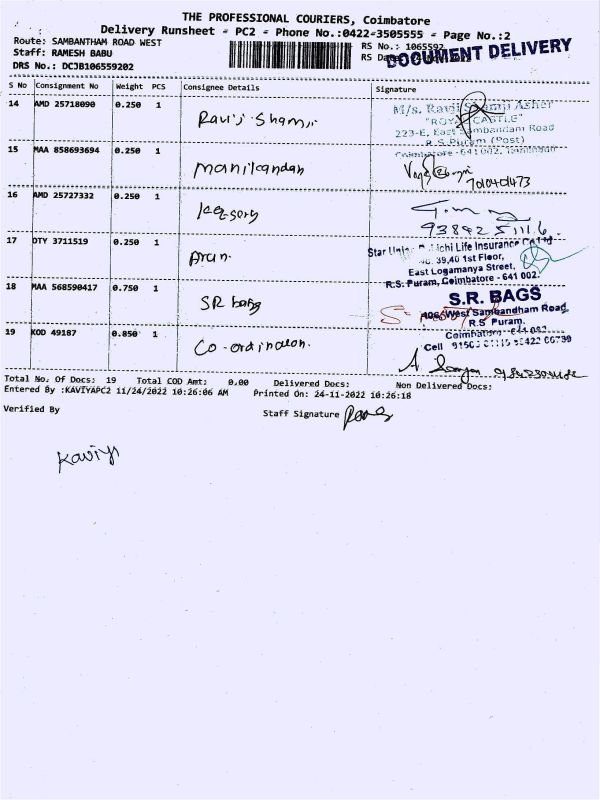 THE PROFESSIONAL COURIERS, Coimbatore
Delivery Runsheet - PC2 - Phone No.:0422-3505555 - Page No.:2
Route: SAMBANTHAM ROAD WEST
RS No.: 1065592
Staff: RAMESH BABU
RS Da
DOCUMENT DELIVERY
DRS No.: DCJB106559202
S No Consignment No Weight PCS Consignee Details Signature
14 AMD 25718090 0.250 1 Ravji Shamji
M/s. Ravji Shamji Asher
"ROYAL CASTLE"
223-E, East Sambandam Road
R.S.Puram (Post)
Coimbatore - 641 002.
15 MAA 858693694 0.250 1 Manikandan
16 AMD 25727332 0.250 1 Kesory
17 DTY 3711519 0.250 1 Arun.
Star Union Dai-ichi Life Insurance Co Ltd
No. 39,40 1st Floor,
East Logamanya Street,
R.S. Puram, Coimbatore - 641 002.
18 MAA 568590417 0.750 1 SR bags
S.R. BAGS
406, West Sambandham Road
R.S Puram,
Coimbatore
Cell
19 KOD 49187 0.850 1 Co-ordination.
Total No. Of Docs: 19 Total COD Amt: 0.00 Delivered Docs: Non Delivered Docs:
Entered By :KAVIYAPC2 11/24/2022 10:26:06 AM Printed On: 24-11-2022 10:26:18
Verified By Staff Signature
Kaviya